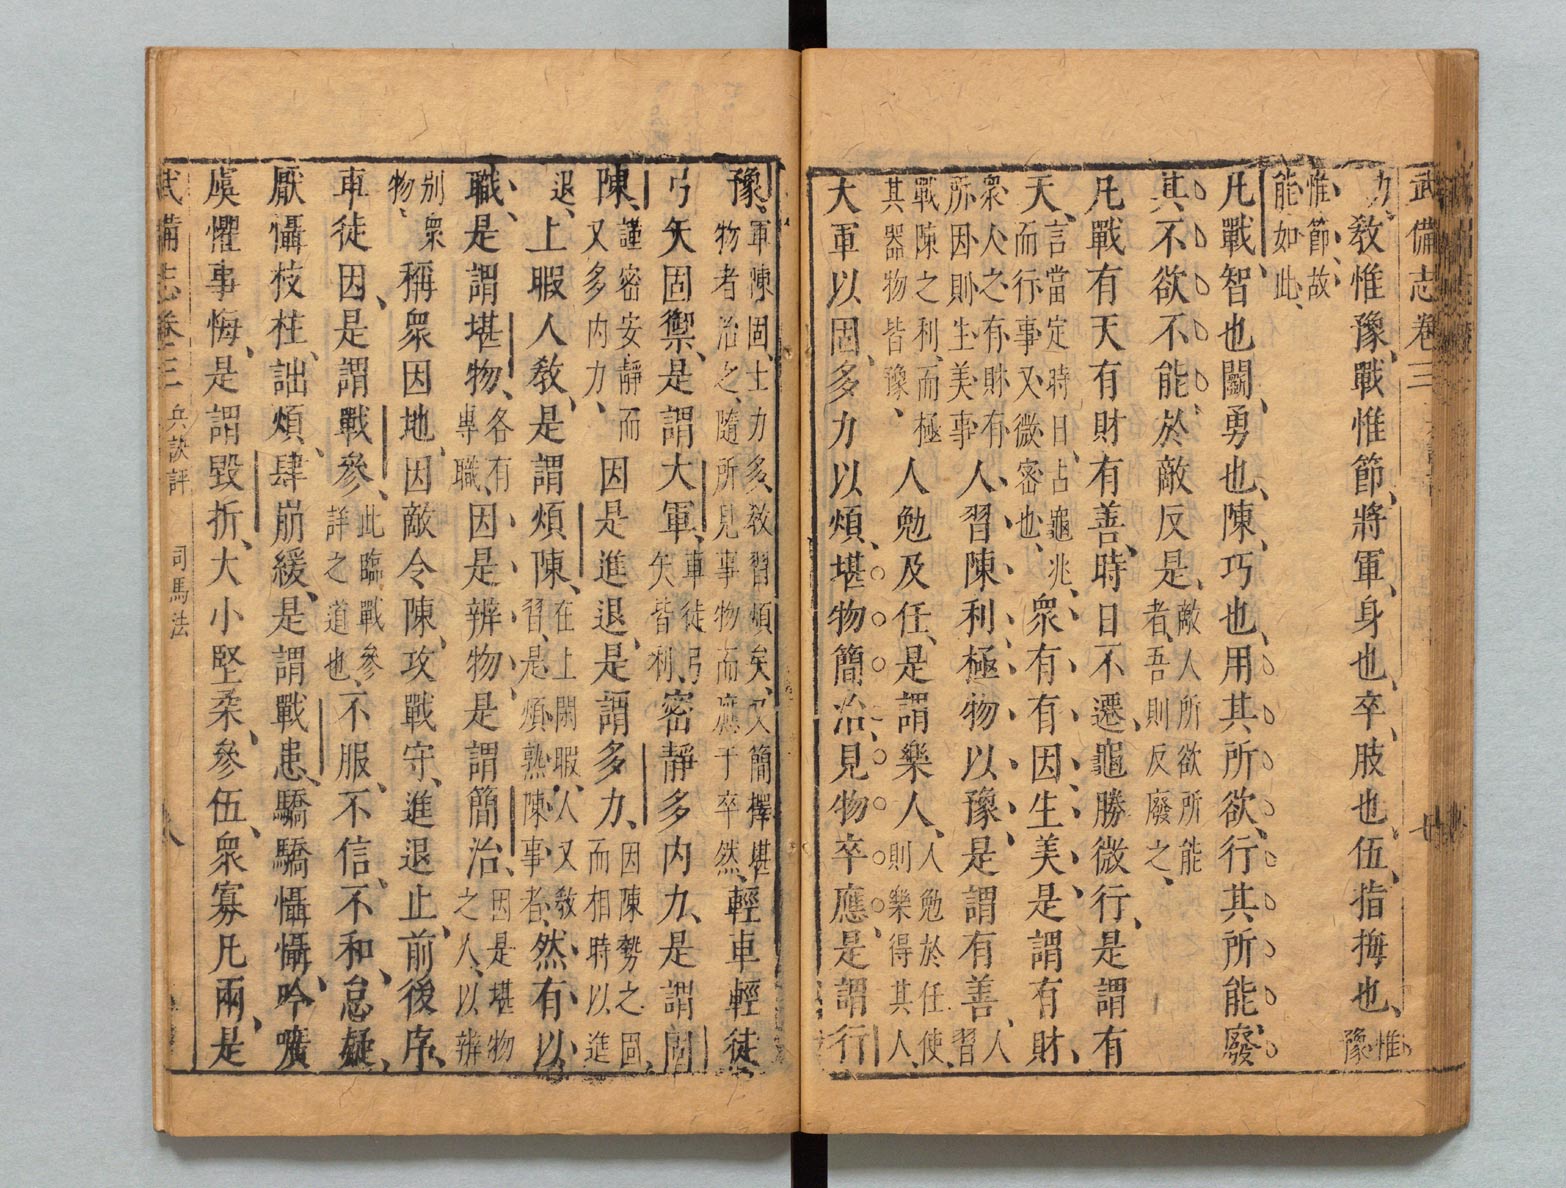 武備志卷三
力、教惟豫、戰惟節、將軍、身也、卒、肢也、伍、指拇也、惟豫
惟節、故能如此、
凡戰、智也、鬭、勇也、陳、巧也、用其所欲、行其所能、廢
其不欲不能、於敵反是、敵人所欲所能者、吾則反廢之、
凡戰有天有財有善、時日不遷、龜勝微行、是謂有
天、言當定時日、占龜兆、而行事又微密也、眾有有因生美、是謂有財、
眾人之有財有所因、則生美事人習陳利、極物以豫、是謂有善、人習
戰陳之利、而極其器物皆豫、人勉及任、是謂樂人、人勉於任使、則樂得其人、
大軍以固、多力以煩、堪物簡治、見物卒應、是謂行
豫、軍陳固、士力多、教習煩矣、又簡擇堪物者治之、隨所見事物而應于卒然、輕車輕徒
弓矢固禦、是謂大軍、車徒弓矢皆利、密靜多內力、是謂固
陳、謹密安靜而又多內力、因是進退、是謂多力、因陳勢之固、而相時以進
退、上暇人教、是謂煩陳、在上閑暇、人又教習、是煩熟陳事者、然有以
職、是謂堪物、各有專職、因是辨物、是謂簡治、因是堪物之人、以辨
別眾物、稱眾因地、因敵令陳、攻戰守、進退止、前後序、
車徒因、是謂戰參、此臨戰參詳之道也、不服、不信、不和、怠、疑、
厭懾枝柱、詘煩、肆崩緩、是謂戰患、驕驕懾懾、吟嚝
虞懼事悔、是謂毀折、大小堅柔、參伍、眾寡凡兩、是
武備志卷三 兵訣評 司馬法 八